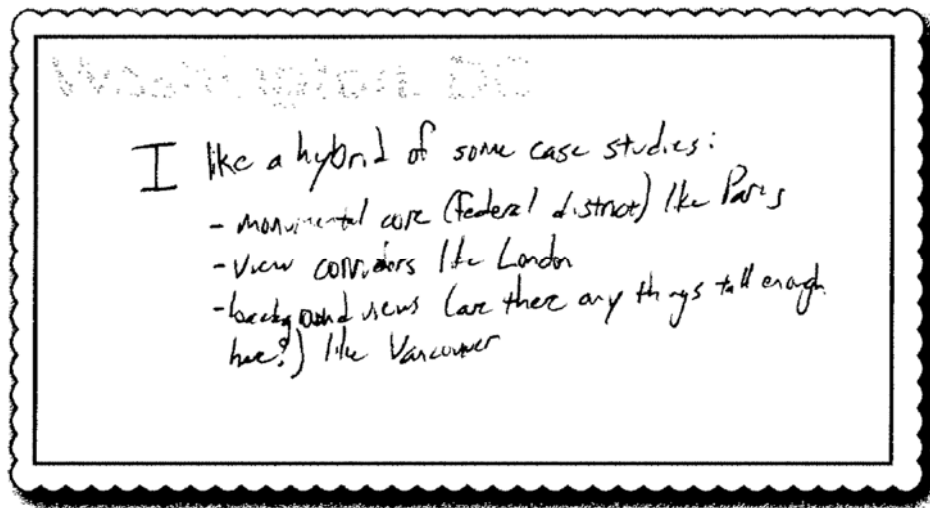 Washington, DC
I like a hybrid of some case studies:
- monumental core (federal district) like Paris
- view corridors like London
- background views (are there any things tall enough
here?) like Vancouver